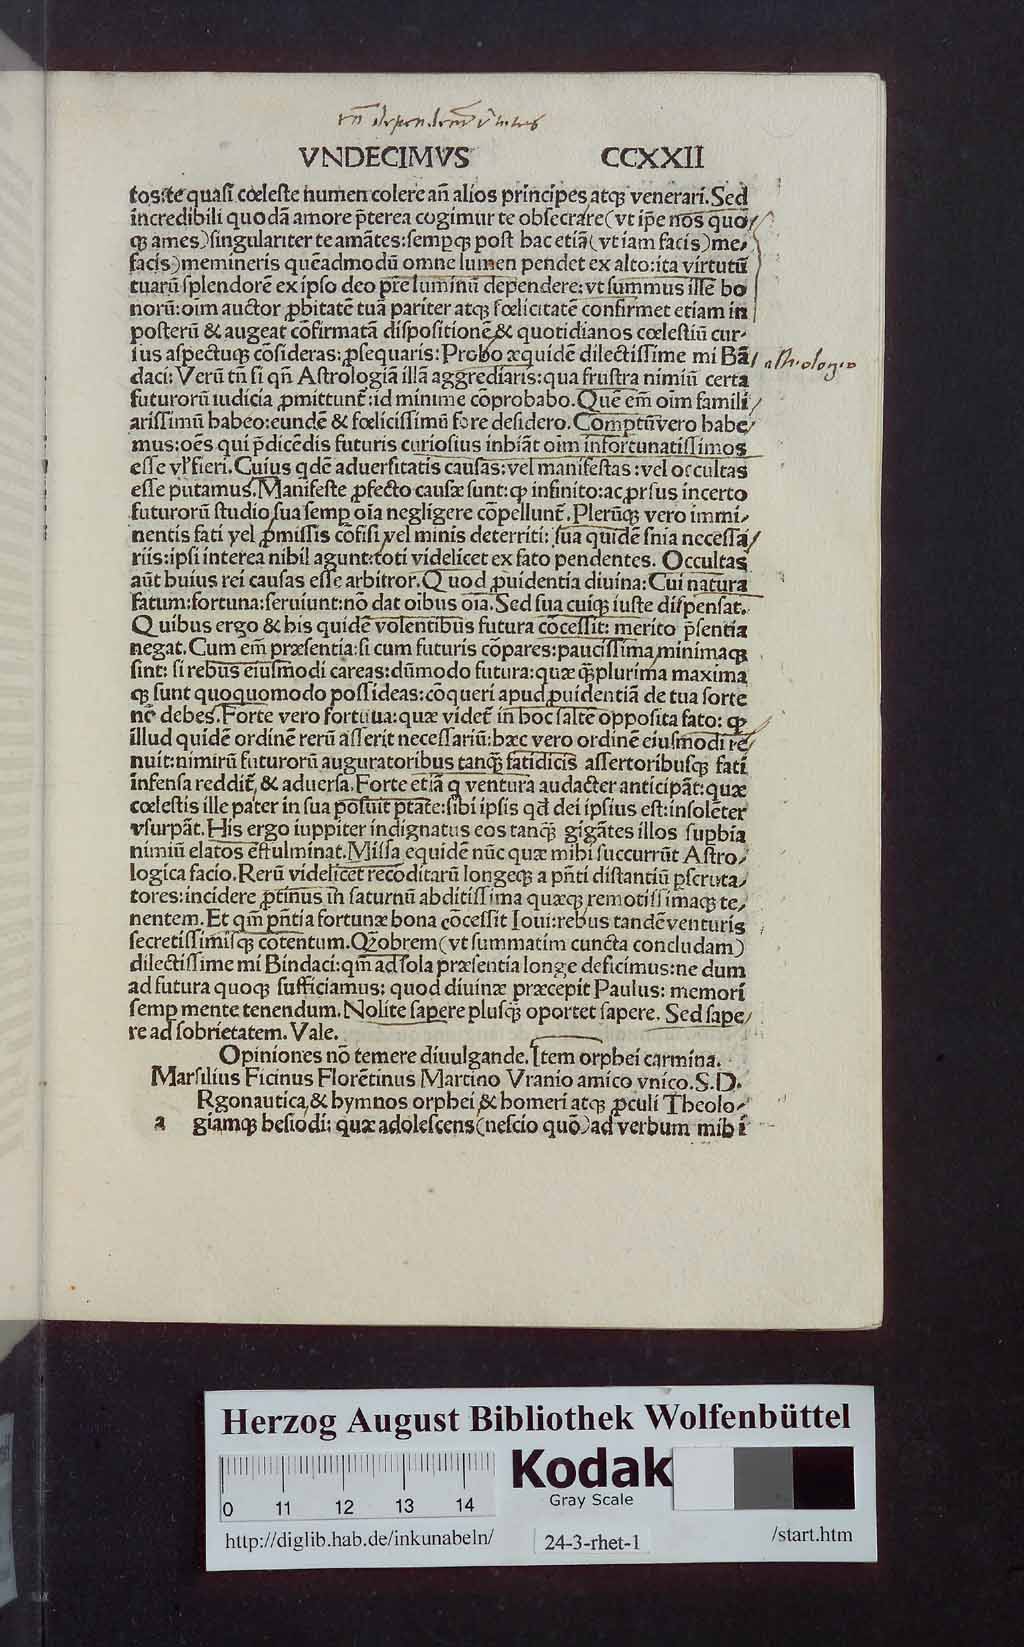 VNDECIMVS CCXXII
tos:te quasi cœleste numen colere an̄ alios principes atq; venerari. Sed
incredibili quodā amore p̄terea cogimur te obsecrare (vt ip̄e nos quo
q; ames) singulariter te amātes: sempq; post hac etiā (vt iam facis) me
facis) memineris quēadmodū omne lumen pendet ex alto: ita virtutū
tuarū splendorē ex ipso deo pr̄e luminū dependere: vt summus ille bo
norū: oīm auctor ꝓbitatē tuā pariter atq; fœlicitatē confirmet etiam in
posterū & augeat cōfirmatā dispositionē & quotidianos cœlestiū cur-
sus aspectusq; cōsideras: ꝓsequaris: Probo æquidē dilectissime mi Bā
daci: Verū tn̄ si qn̄ Astrologiā illā aggrediaris: qua frustra nimiū certa
futurorū iudicia ꝓmittunt̄: id minime cōprobabo. Quē em̄ oīm famili
arissimū habeo: eundē & fœlicissimū fore desidero. Comptū vero habe
mus: oēs qui p̄dicēdis futuris curiosius inhiāt oīm infortunatissimos
esse vl' fieri. Cuius qdē aduersitatis causas: vel manifestas: vel occultas
esse putamus. Manifeste ꝓfecto causæ sunt: ꝙ infinito: ac prsus incerto
futurorū studio sua semp oīa negligere cōpellunt̄. Plerūq; vero immi-
nentis fati vel ꝓmissis cōfisi vel minis deterriti: sua quidē sn̄ia necessa
riis: ipsi interea nihil agunt: toti videlicet ex fato pendentes. Occultas
aūt huius rei causas esse arbitror. Quod ꝓuidentia diuina: Cui natura
fatum: fortuna: seruiunt: nō dat oībus oīa. Sed sua cuiq; iuste dispensat.
Quibus ergo & his quidē volentibus futura cōcessit: merito p̄sentia
negat. Cum em̄ præsentia: si cum futuris cōpares: paucissima minimaq;
sint: si rebus eiusmodi careas: dūmodo futura: quæ q̄ plurima maxima
q; sunt quoquomodo possideas: cōqueri apud ꝓuidentiā de tua sorte
nō debes. Forte vero fortuna: quæ videt̄ in hoc saltē opposita fato: ꝙ
illud quidē ordinē rerū asserit necessariū: hæc vero ordinē eiusmodi re
nuit: nimirū futurorū auguratoribus tanq̄ fatidicis assertoribusq; fati
infensa reddit̄, & aduersa. Forte etiā q ventura audacter anticipāt: quæ
cœlestis ille pater in sua posuit ptāte: sibi ipsis qd dei ipsius est: insolēter
vsurpāt. His ergo iuppiter indignatus eos tanq̄ gigātes illos supbia
nimiū elatos effulminat. Missa equidē nūc quæ mihi succurrūt Astro-
logica facio. Rerū videlicet reconditarū longeq; a pn̄ti distantiū pscruta
tores: incidere ꝓtinus in saturnū abditissima quæq; remotissimaq; te
nentem. Et qm̄ pn̄tia fortunæ bona cōcessit Ioui: rebus tandē venturis
secretissimisq; cōtentum. Qōobrem (vt summatim cuncta concludam)
dilectissime mi Bindaci: qm̄ ad sola præsentia longe deficimus: ne dum
ad futura quoq; sufficiamus: quod diuinæ præcepit Paulus: memori
semp mente tenendum. Nolite sapere plusq̄ oportet sapere. Sed sape
re ad sobrietatem. Vale.
astrologio
Opiniones nō temere diuulgande. Item orphei carmina.
Marsilius Ficinus Florētinus Martino Vranio amico vnico. S. D.
a Rgonautica, & hymnos orphei & homeri atq; ꝓculi Theolo-
giamq; hesiodi: quæ adolescens (nescio quō) ad verbum mihi
Herzog August Bibliothek Wolfenbüttel
0 11 12 13 14
Kodak
Gray Scale
http://diglib.hab.de/inkunabeln/ 24-3-rhet-1 /start.htm